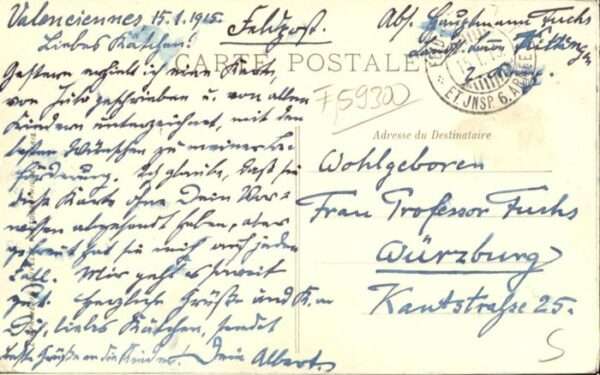 Valenciennes 15.1.1915.
Feldpost.
Abs. Hauptmann Fuchs
Liebes Kätchen!
CARTE POSTALE
ET. JNSP. 6. ARMEE
Gestern erhielt ich eine Karte,
von geschrieben u. von allen
Kindern unterzeichnet, mit den
besten Wünschen zu meiner Be-
förderung. Ich glaube, daß sie
diese Karte ohne Dein Vor-
wissen abgesandt haben, aber
gefreut hat sie mich auf jeden
Fall. Mir geht es soweit
gut. Herzliche Grüße und K.
Dich, liebes Kätchen, sendet
beste Grüße an die Kinder! Dein Albert.
F,59300
Adresse du Destinataire
Wohlgeboren
Frau Professor Fuchs
Würzburg
Kantstraße 25.